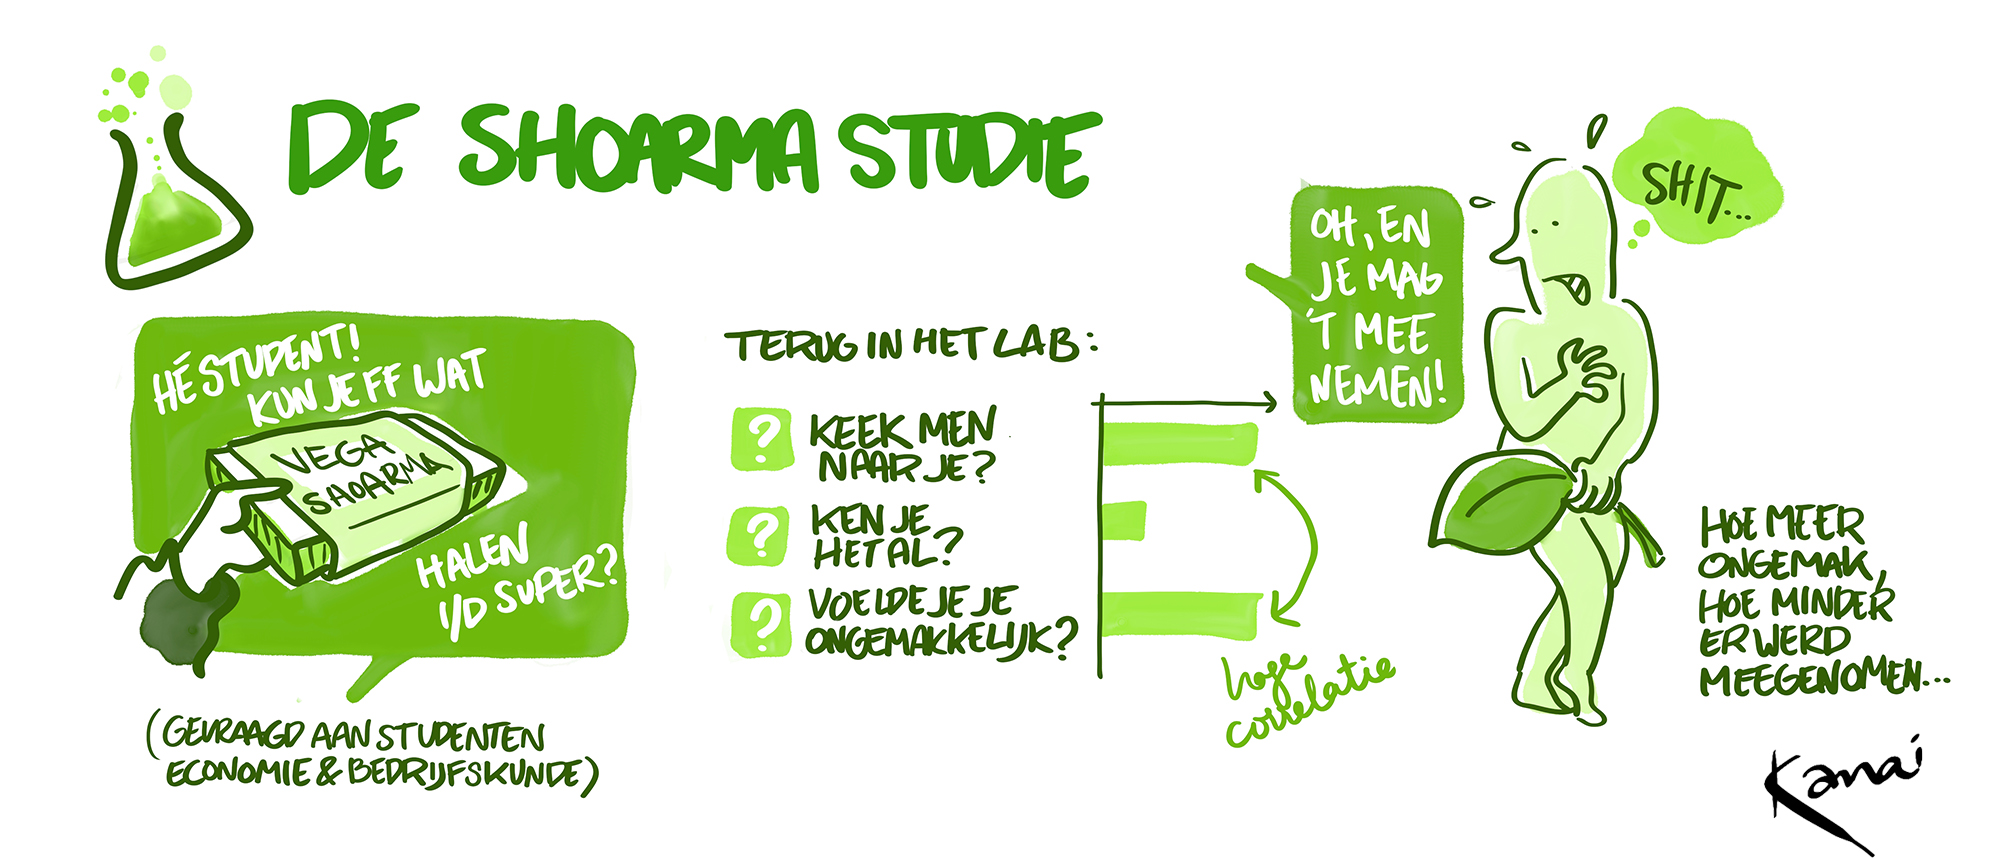 DE SHOARMA STUDIE
HÉ STUDENT!
KUN JE FF WAT
VEGA
SHOARMA
HALEN
I/D SUPER?
(GEVRAAGD AAN STUDENTEN
ECONOMIE & BEDRIJFSKUNDE)
TERUG IN HET LAB:
? KEEK MEN
NAAR JE?
? KEN JE
HET AL?
? VOELDE JE JE
ONGEMAKKELIJK?
hoge
correlatie
OH, EN
JE MAG
'T MEE
NEMEN!
SHIT...
HOE MEER
ONGEMAK,
HOE MINDER
ER WERD
MEEGENOMEN...
Kanai